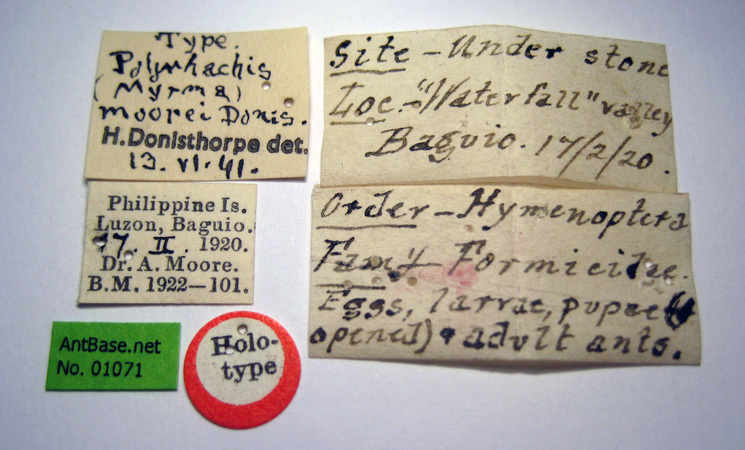 Type.
Polyrhachis
(Myrma)
moorei Donis.
H.Donisthorpe det.
13. VI. 41.
Site - Under stone
Loc. - "Waterfall" valley
Baguio. 17/2/20.
Philippine Is.
Luzon, Baguio.
17. II. 1920.
Dr. A. Moore.
B.M. 1922—101.
Order - Hymenoptera
Famy - Formicidae.
Eggs, larvae, pupae (
opened) & adult ants.
AntBase.net
No. 01071
Holo-
type